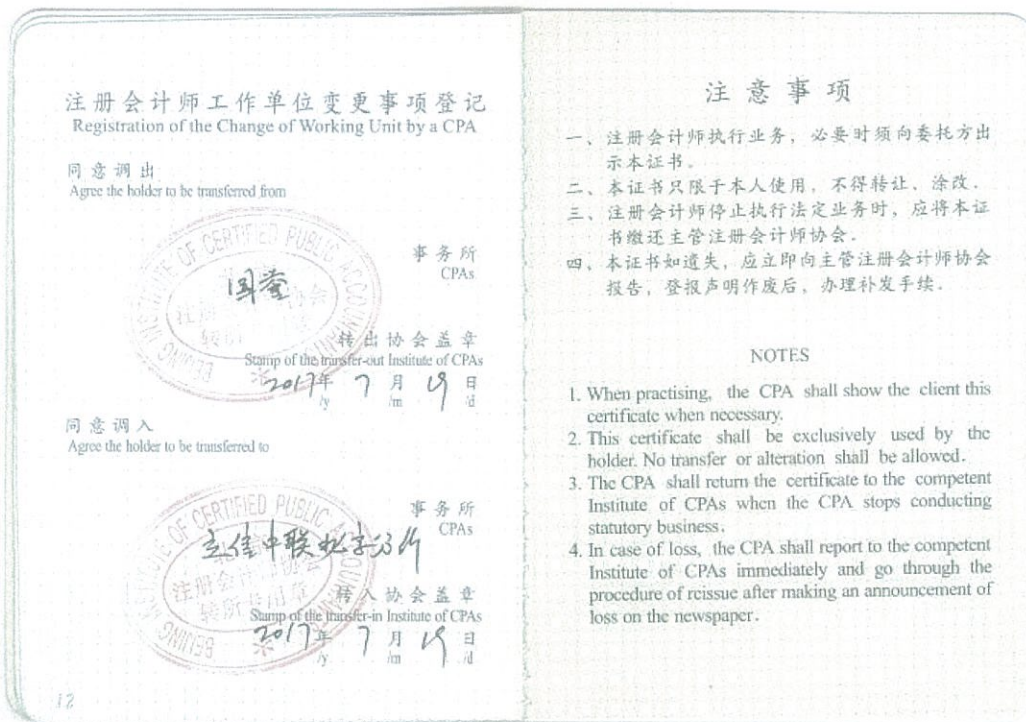 注册会计师工作单位变更事项登记
Registration of the Change of Working Unit by a CPA
同意调出
Agree the holder to be transferred from
BEIJING INSTITUTE OF CERTIFIED PUBLIC ACCOUNTANTS
国
事务所
CPAs
转出协会盖章
Stamp of the transfer-out Institute of CPAs
2017年 7月 19日
/y /m /d
同意调入
Agree the holder to be transferred to
BEIJING INSTITUTE OF CERTIFIED PUBLIC ACCOUNTANTS
注册会计师协会
转所专用章
立信中联北京分所
事务所
CPAs
转入协会盖章
Stamp of the transfer-in Institute of CPAs
2017年 7月 19日
/y /m /d
12
注意事项
一、注册会计师执行业务，必要时须向委托方出
示本证书。
二、本证书只限于本人使用，不得转让、涂改．
三、注册会计师停止执行法定业务时，应将本证
书缴还主管注册会计师协会．
四、本证书如遗失，应立即向主管注册会计师协会
报告，登报声明作废后，办理补发手续．
NOTES
1. When practising, the CPA shall show the client this
certificate when necessary.
2. This certificate shall be exclusively used by the
holder. No transfer or alteration shall be allowed.
3. The CPA shall return the certificate to the competent
Institute of CPAs when the CPA stops conducting
statutory business.
4. In case of loss, the CPA shall report to the competent
Institute of CPAs immediately and go through the
procedure of reissue after making an announcement of
loss on the newspaper.